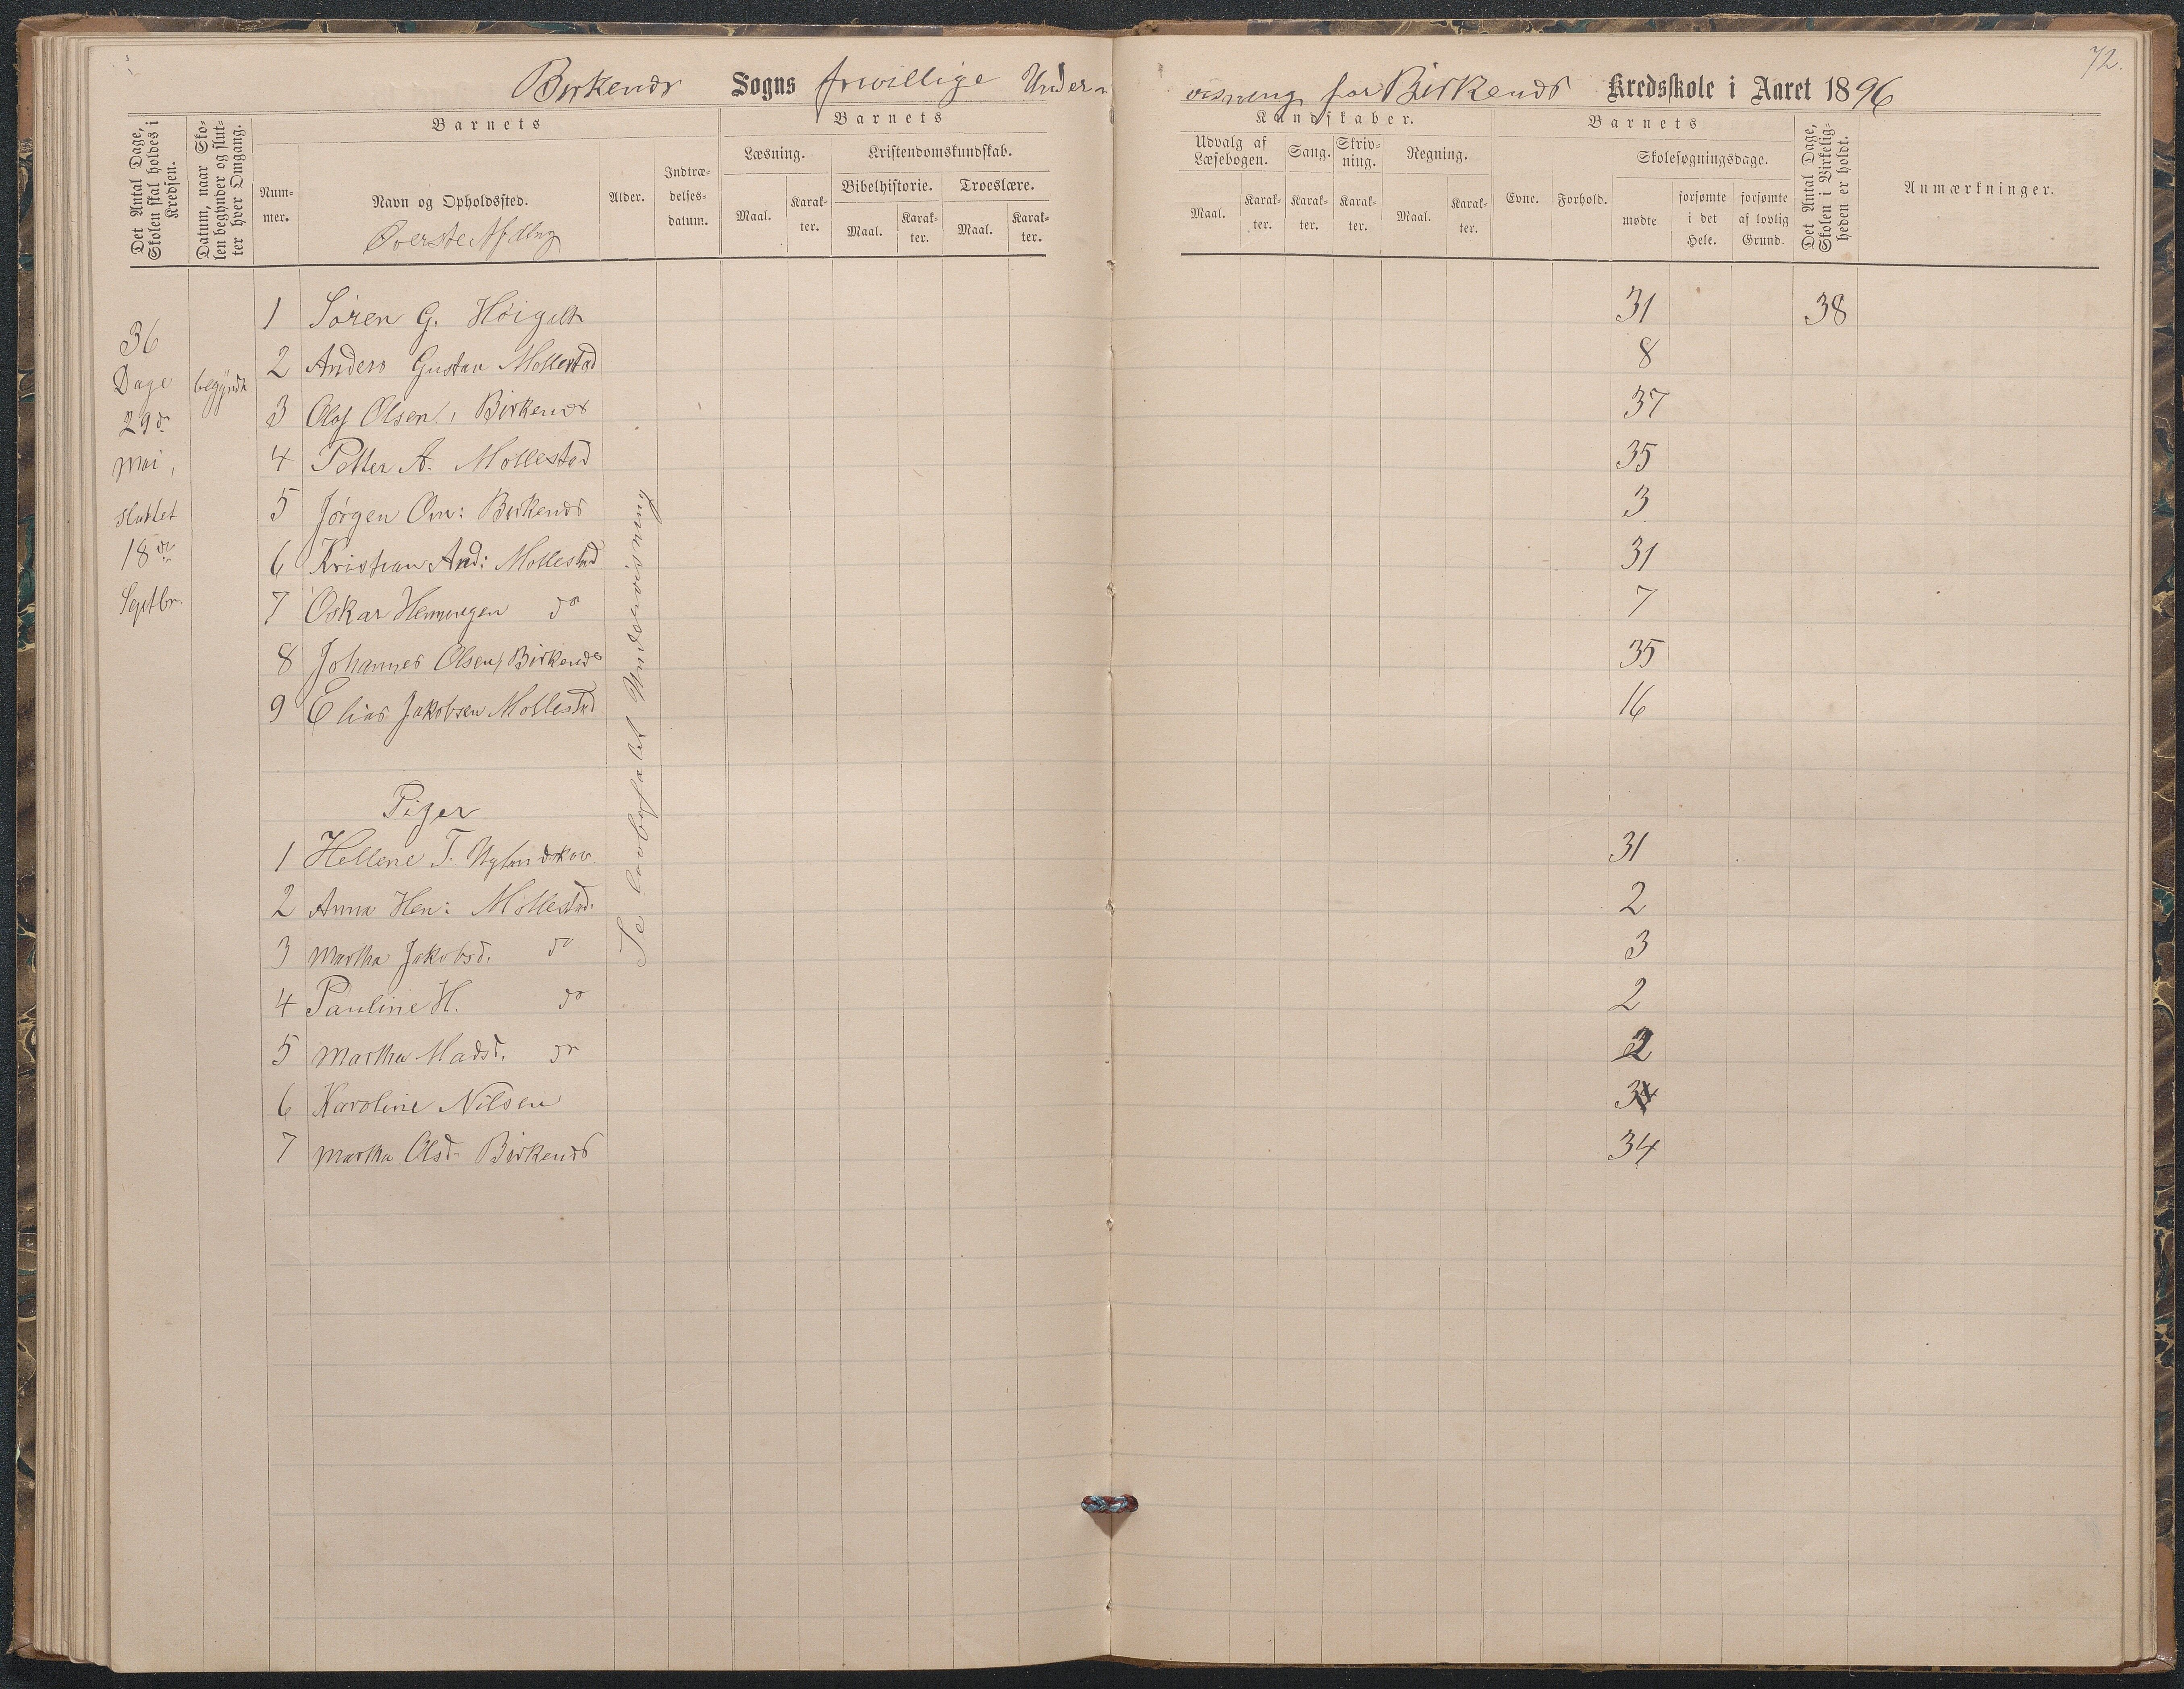 72.
Birkenæs Sogns frivillige Undervisning for Birkenæs Kredsskole i Aaret 1896
Det Antal Dage, Skolen skal holdes i Kredsen.
Datum, naar Skolen begynder og slutter hver Omgang.
Barnets
Nummer.
Navn og Opholdssted.
Øverste Afdlng
Alder.
Indtrædelsesdatum.
Barnets
Kundskaber.
Læsning.
Maal.
Karakter.
Kristendomskundskab.
Bibelhistorie.
Maal.
Karakter.
Troeslære.
Maal.
Karakter.
Udvalg af Læsebogen.
Maal.
Karakter.
Sang.
Karakter.
Skrivning.
Karakter.
Regning.
Maal.
Karakter.
Barnets
Evne.
Forhold.
Skolesøgningsdage.
mødte
forsømte i det Hele.
forsømte af lovlig Grund.
Det Antal Dage, Skolen i Virkeligheden er holdt.
Anmærkninger.
36
Dage
29de
Mai,
sluttet
18de
Septbr.
begyndt
Se lovbefalet Undervisning
1 Søren G. Høigilt 31 38
2 Anders Gustav Mollestad 8
3 Olaf Olsen, Birkenæs 37
4 Petter A. Mollestad 35
5 Jørgen Om: Birkenæs 3
6 Kristian And: Mollestad 31
7 Oskar Hemmingsen do 7
8 Johannes Olsen, Birkenæs 35
9 Elias Jakobsen Mollestad 16
Piger
1 Hellene T. Nylandskov 31
2 Anna Hen: Mollestad. 2
3 Martha Jakobsd. do 3
4 Pauline H. do 2
5 Martha Madsd. do 2
6 Karoline Nilsen 34
7 Martha Olsd. Birkenæs 34